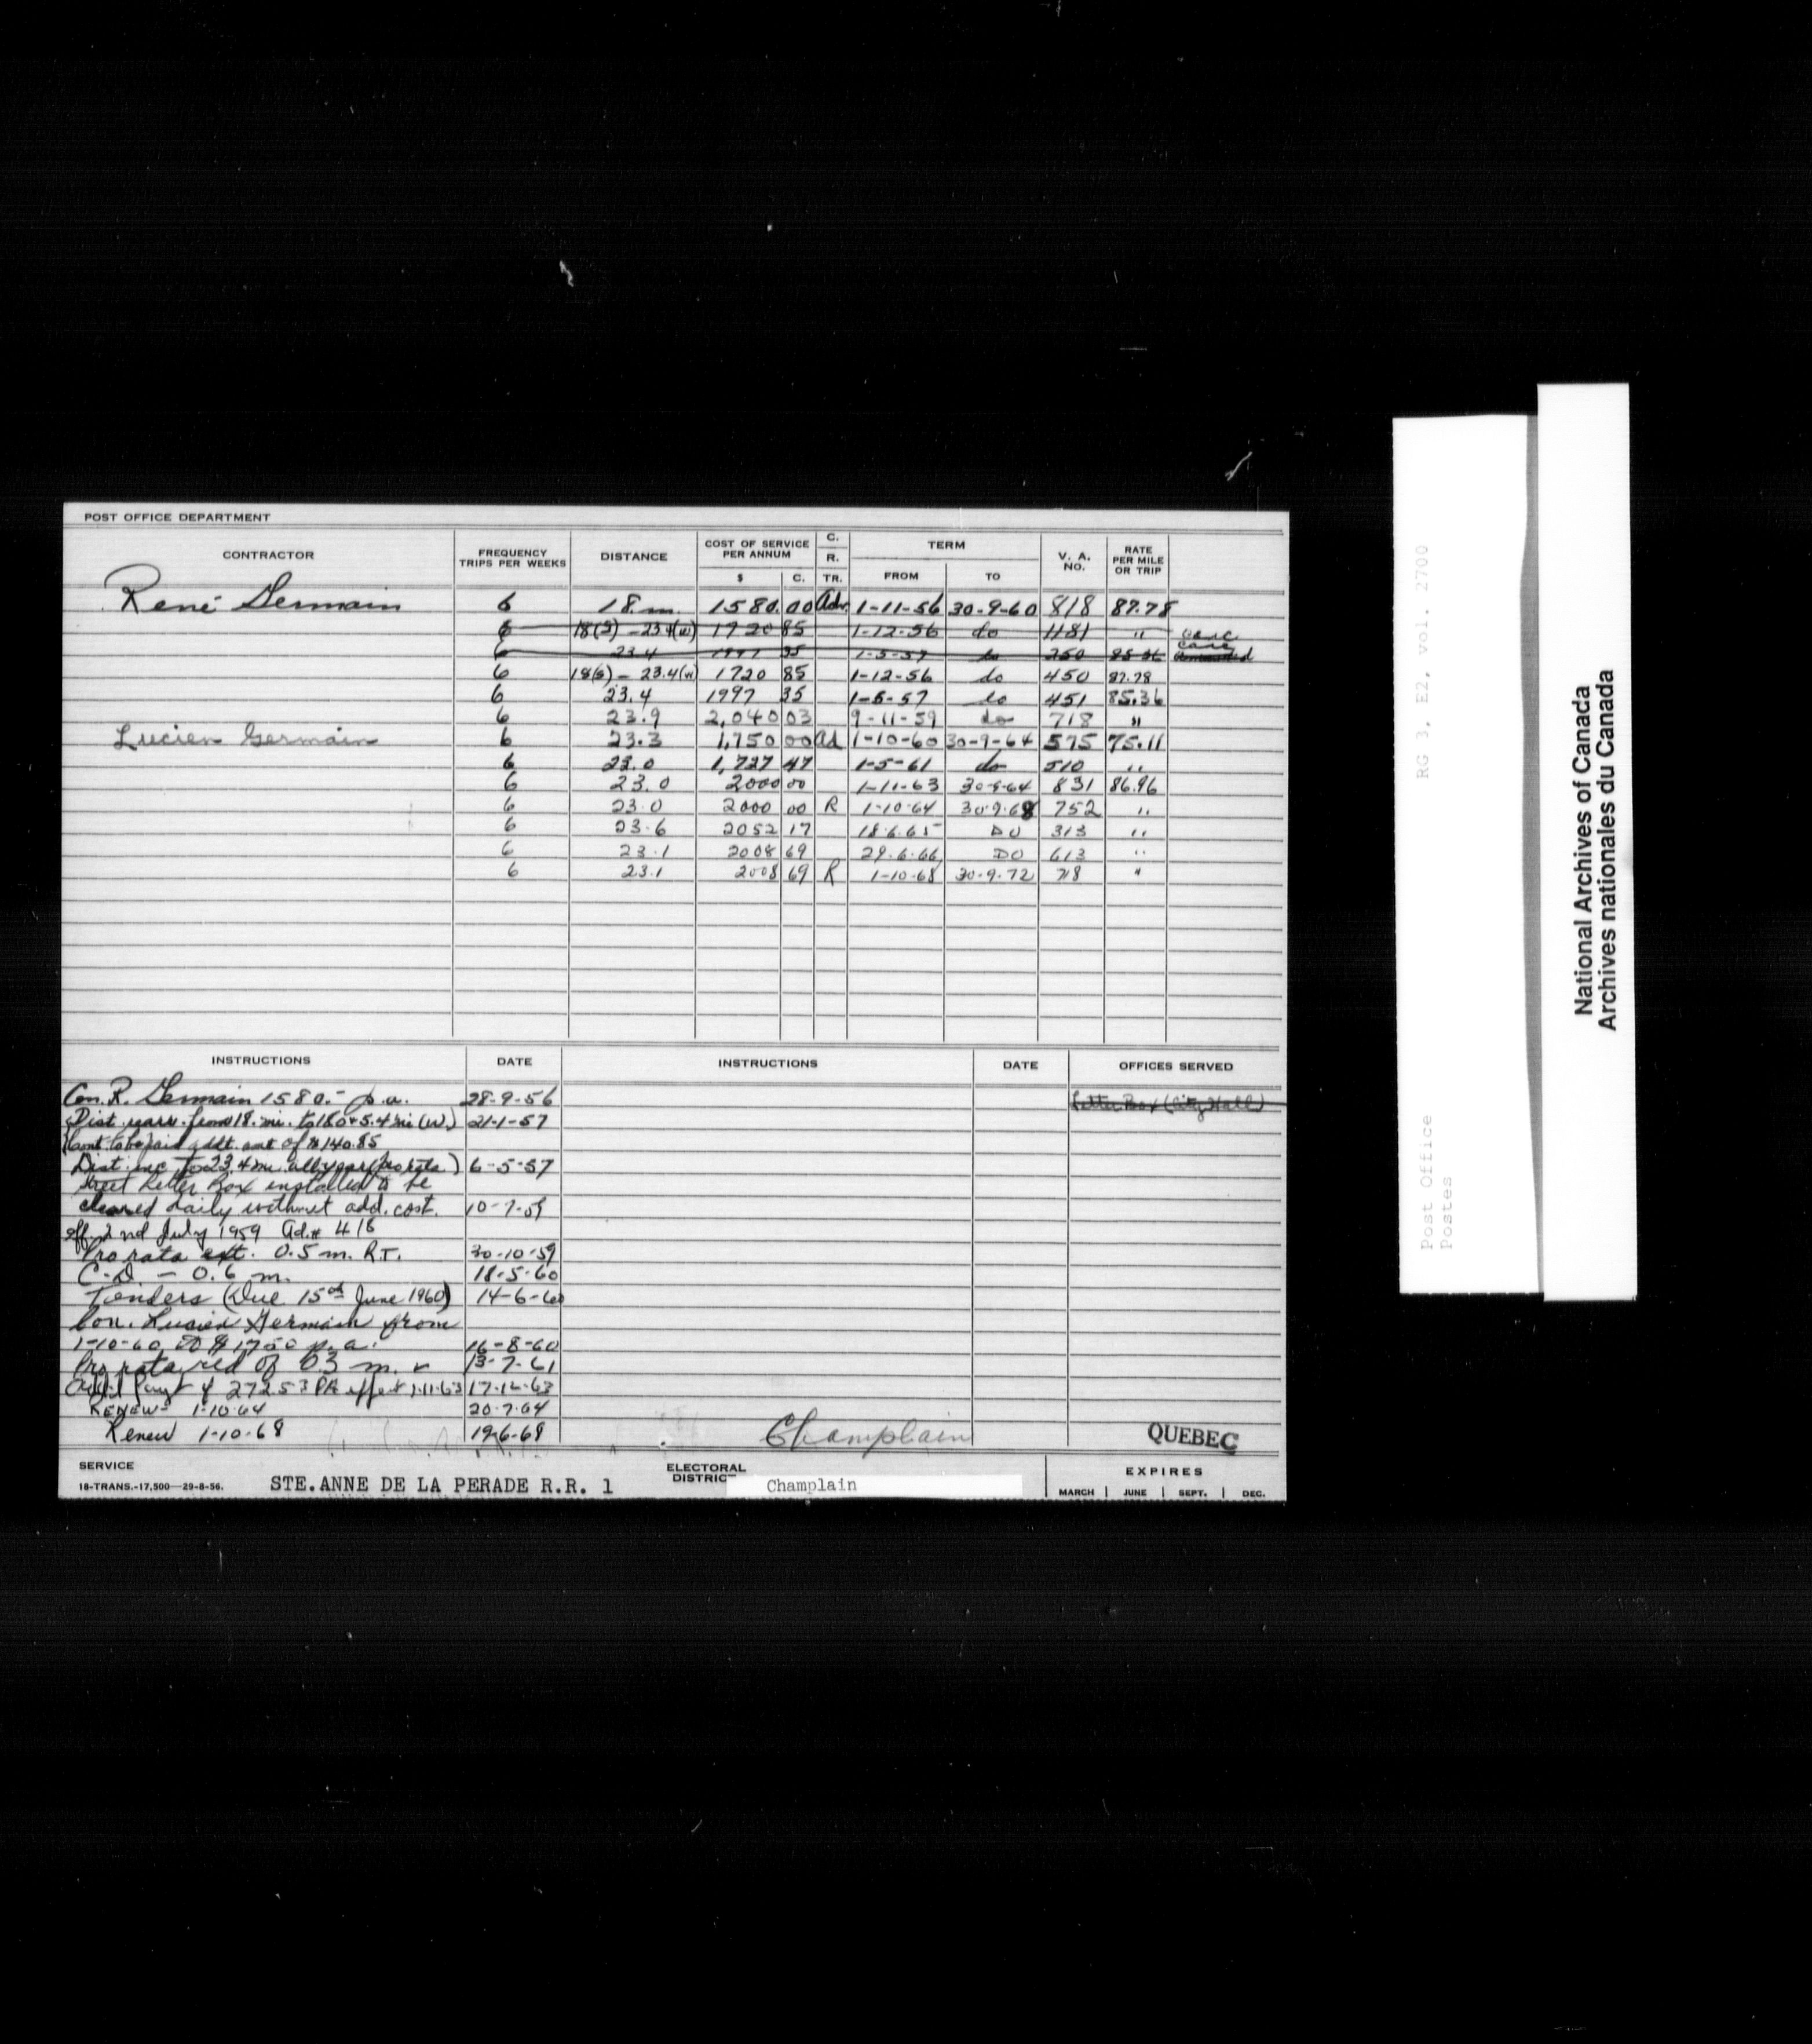 POST OFFICE DEPARTMENT
CONTRACTOR FREQUENCY TRIPS PER WEEKS DISTANCE COST OF SERVICE PER ANNUM $ C. C. R. TR. TERM FROM TO V. A. NO. RATE PER MILE OR TRIP
René Germain 6 18.m. 1580.00 Adv. 1-11-56 30-9-60 818 87.78
6 18(S) - 23.4(W) 1720 85 1-12-56 do 1181 " canc
6 23.4 1997 35 1-5-57 do 250 85.36 canc
6 18(S) - 23.4(W) 1720 85 1-12-56 do 450 87.78
6 23.4 1997 35 1-5-57 do 451 85.36
6 23.9 2,040 03 9-11-59 do 718 "
Lucien Germain 6 23.3 1,750 00 Ad 1-10-60 30-9-64 575 75.11
6 23.0 1,727 47 1-5-61 do 510 "
6 23.0 2000 00 1-11-63 30-9-64 831 86.96
6 23.0 2000 00 R 1-10-64 30-9-68 752 "
6 23.6 2052 17 18.6.65 DO 313 "
6 23.1 2008 69 29.6.66 DO 613 "
6 23.1 2008 69 R 1-10-68 30-9-72 718 "
INSTRUCTIONS DATE INSTRUCTIONS DATE OFFICES SERVED
Con. R. Germain 1580.- p.a. 28-9-56 Letter Box (City Hall)
Dist. from 18. mi. to 18.0 + 5.4 mi (W.) 21-1-57
Cont. to be paid addt. amt of $140.85
Dist. inc. to 23.4 mi. all year (pro rata) 6-5-57
Street Letter Box installed to be
cleared daily without add. cost. 10-7-59
eff. 2nd July 1959 Ad.# 416
Pro rata ext. 0.5 m. R.T. 30-10-59
C.D. - 0.6 m. 18-5-60
Tenders (Due 15th June 1960) 14-6-60
Con. Lucien Germain from
1-10-60 @ $1750 p.a. 16-8-60
Pro rata red of 0.3 m. 13-7-61
Add'l Payt of 272.53 PA effect 1-11-63 17-12-63
RENEW- 1-10-64 20-7-64
Renew 1-10-68 19-6-68
Champlain
QUEBEC
SERVICE
18-TRANS.-17,500—29-8-56.
STE.ANNE DE LA PERADE R.R. 1
ELECTORAL DISTRIC
Champlain
EXPIRES
MARCH JUNE SEPT. DEC.
RG 3, E2, vol. 2700
Post Office
Postes
National Archives of Canada
Archives nationales du Canada